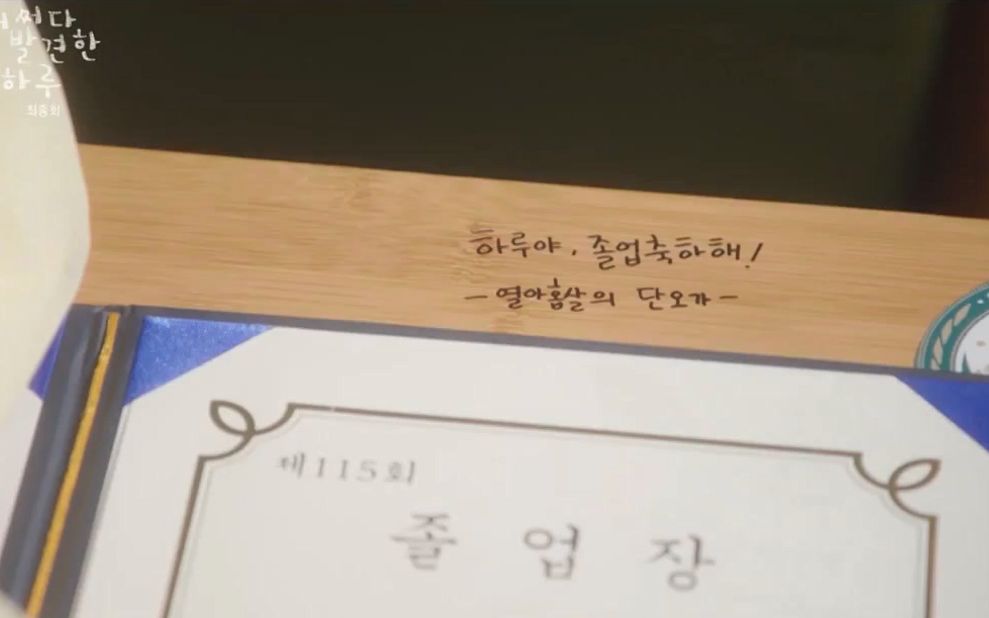 어쩌다
발견한
하루
최종회
하루야, 졸업축하해!
- 열아홉살의 단오가 -
제115회
졸 업 장